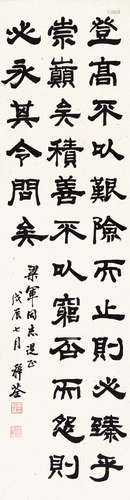 登高不以艱險而止則必臻乎
崇巔矣積善不以窮否而怨則
必永其令問矣
梁軍同志選正
戊辰七月 薛荃